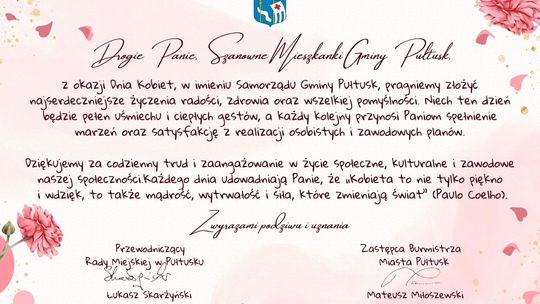 Drogie Panie, Szanowne Mieszkanki Gminy Pułtusk,
z okazji Dnia Kobiet, w imieniu Samorządu Gminy Pułtusk, pragniemy złożyć
najserdeczniejsze życzenia radości, zdrowia oraz wszelkiej pomyślności. Niech ten dzień
będzie pełen uśmiechu i ciepłych gestów, a każdy kolejny przynosi Paniom spełnienie
marzeń oraz satysfakcję z realizacji osobistych i zawodowych planów.
Dziękujemy za codzienny trud i zaangażowanie w życie społeczne, kulturalne i zawodowe
naszej społeczności.Każdego dnia udowadniają Panie, że „Kobieta to nie tylko piękno
i wdzięk, to także mądrość, wytrwałość i siła, które zmieniają świat” (Paulo Coelho).
Z wyrazami podziwu i uznania
Przewodniczący
Rady Miejskiej w Pułtusku
Łukasz Skarżyński
Zastępca Burmistrza
Miasta Pułtusk
Mateusz Miłoszewski